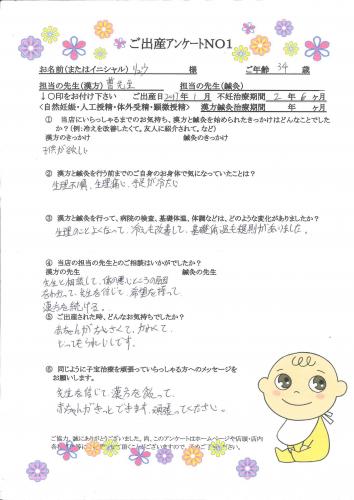 ご出産アンケートNO1
お名前(またはイニシャル) リュウ 様 ご年齢 34 歳
担当の先生(漢方) 曹先生 担当の先生(鍼灸)
↓○印をお付け下さい ご出産日 2017年 1月 不妊治療期間 2年 6ヶ月
<自然妊娠・人工授精・体外受精・顕微授精> 漢方鍼灸治療期間 年 ヶ月
① 当店にいらっしゃるまでのお気持ち、漢方と鍼灸を始められたきっかけはどんなことでした
か?(例:冷えを改善したくて。友人に紹介されて。など)
漢方のきっかけ 鍼灸のきっかけ
子供が欲しい
② 漢方と鍼灸を行う前までのご自身のお身体で気になっていたことは?
生理不順、生理痛い、手足が冷たい
③ 漢方や鍼灸を行って、病院の検査、基礎体温、体調などは、どのような変化がありましたか?
生理のことよくなって、冷えも改善して、基礎体温も規則がありました。
④ 当店の担当の先生とのご相談はいかがでしたか?
漢方の先生 鍼灸の先生
先生と相談して、体の悪いところの原因
先生を信じて、希望を持って、
漢方を続ける。
⑤ ご出産された時、どんなお気持ちでしたか?
赤ちゃんが小さくて、かわくて、
とってもうれしいです。
⑥ 同じように子宝治療を頑張っていらっしゃる方へのメッセージを
お願いします。
先生を信じて、漢方を飲って、
赤ちゃんがきっとできます、頑張ってください。
ご協力、誠にありがとうございました。尚、このアンケートはホームページや店頭・店内